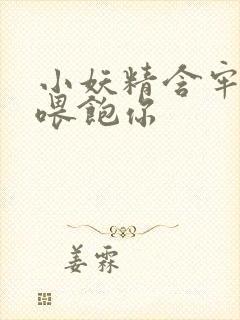 小妖精含牢
喂飽你
姜霖